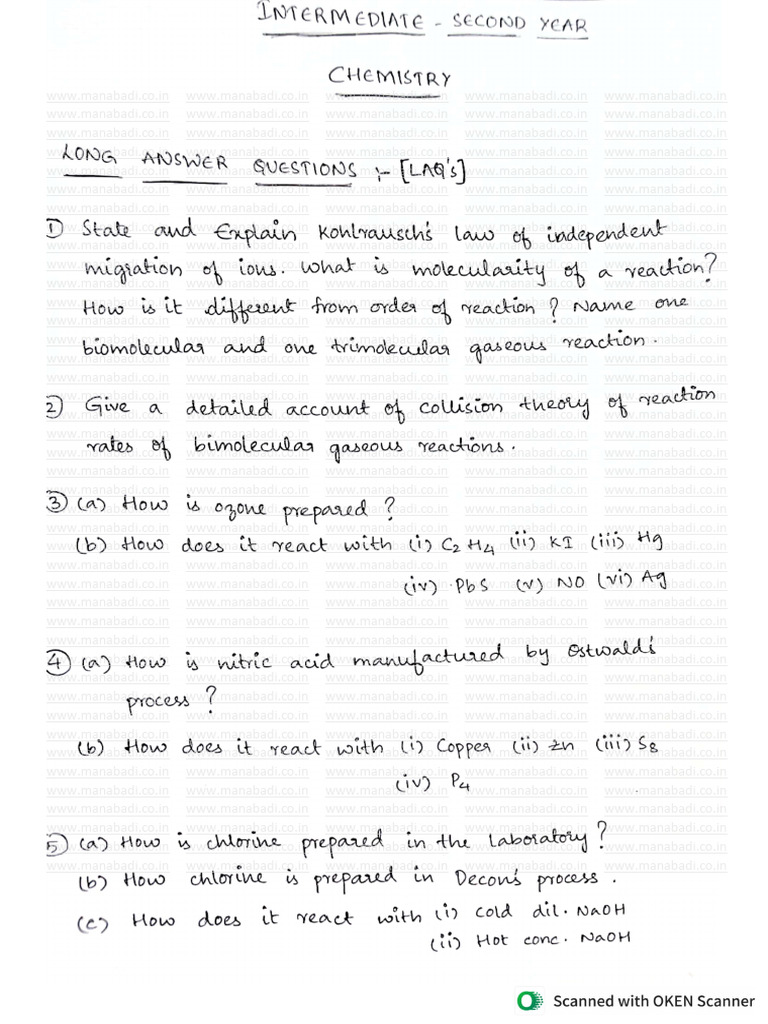 INTERMEDIATE - SECOND YEAR
CHEMISTRY
LONG ANSWER QUESTIONS :- [LAQ's]
1) State and Explain Kohlrausch's law of independent
migration of ions. What is molecularity of a reaction?
How is it different from order of reaction? Name one
biomolecular and one trimolecular gaseous reaction.
2) Give a detailed account of collision theory of reaction
rates of bimolecular gaseous reactions.
3) (a) How is ozone prepared?
(b) How does it react with (i) C2H4 (ii) KI (iii) Hg
(iv) PbS (v) NO (vi) Ag
4) (a) How is nitric acid manufactured by Ostwald's
process?
(b) How does it react with (i) Copper (ii) Zn (iii) S8
(iv) P4
5) (a) How is chlorine prepared in the laboratory?
(b) How chlorine is prepared in Decon's process.
(c) How does it react with (i) cold dil. NaOH
(ii) Hot conc. NaOH
www.manabadi.co.in
Scanned with OKEN Scanner